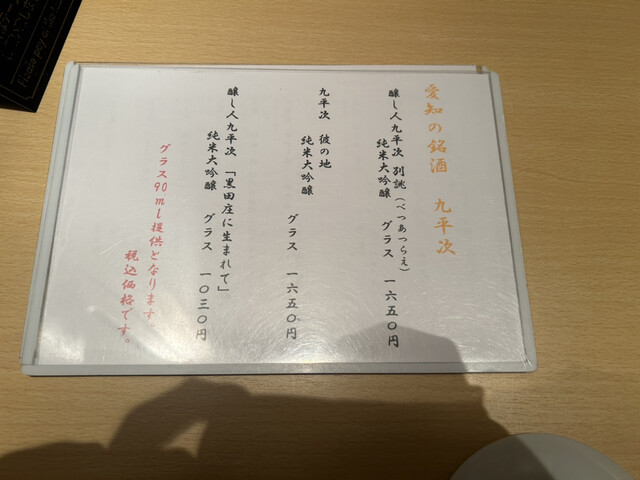 愛知の銘酒 九平次
醸し人九平次 別誂(べつあつらえ)
純米大吟醸 グラス 一六五〇円
九平次 彼の地
純米大吟醸 グラス 一六五〇円
醸し人九平次 「黒田庄に生まれて」
純米大吟醸 グラス 一〇三〇円
グラス90ml提供となります
税込価格です。